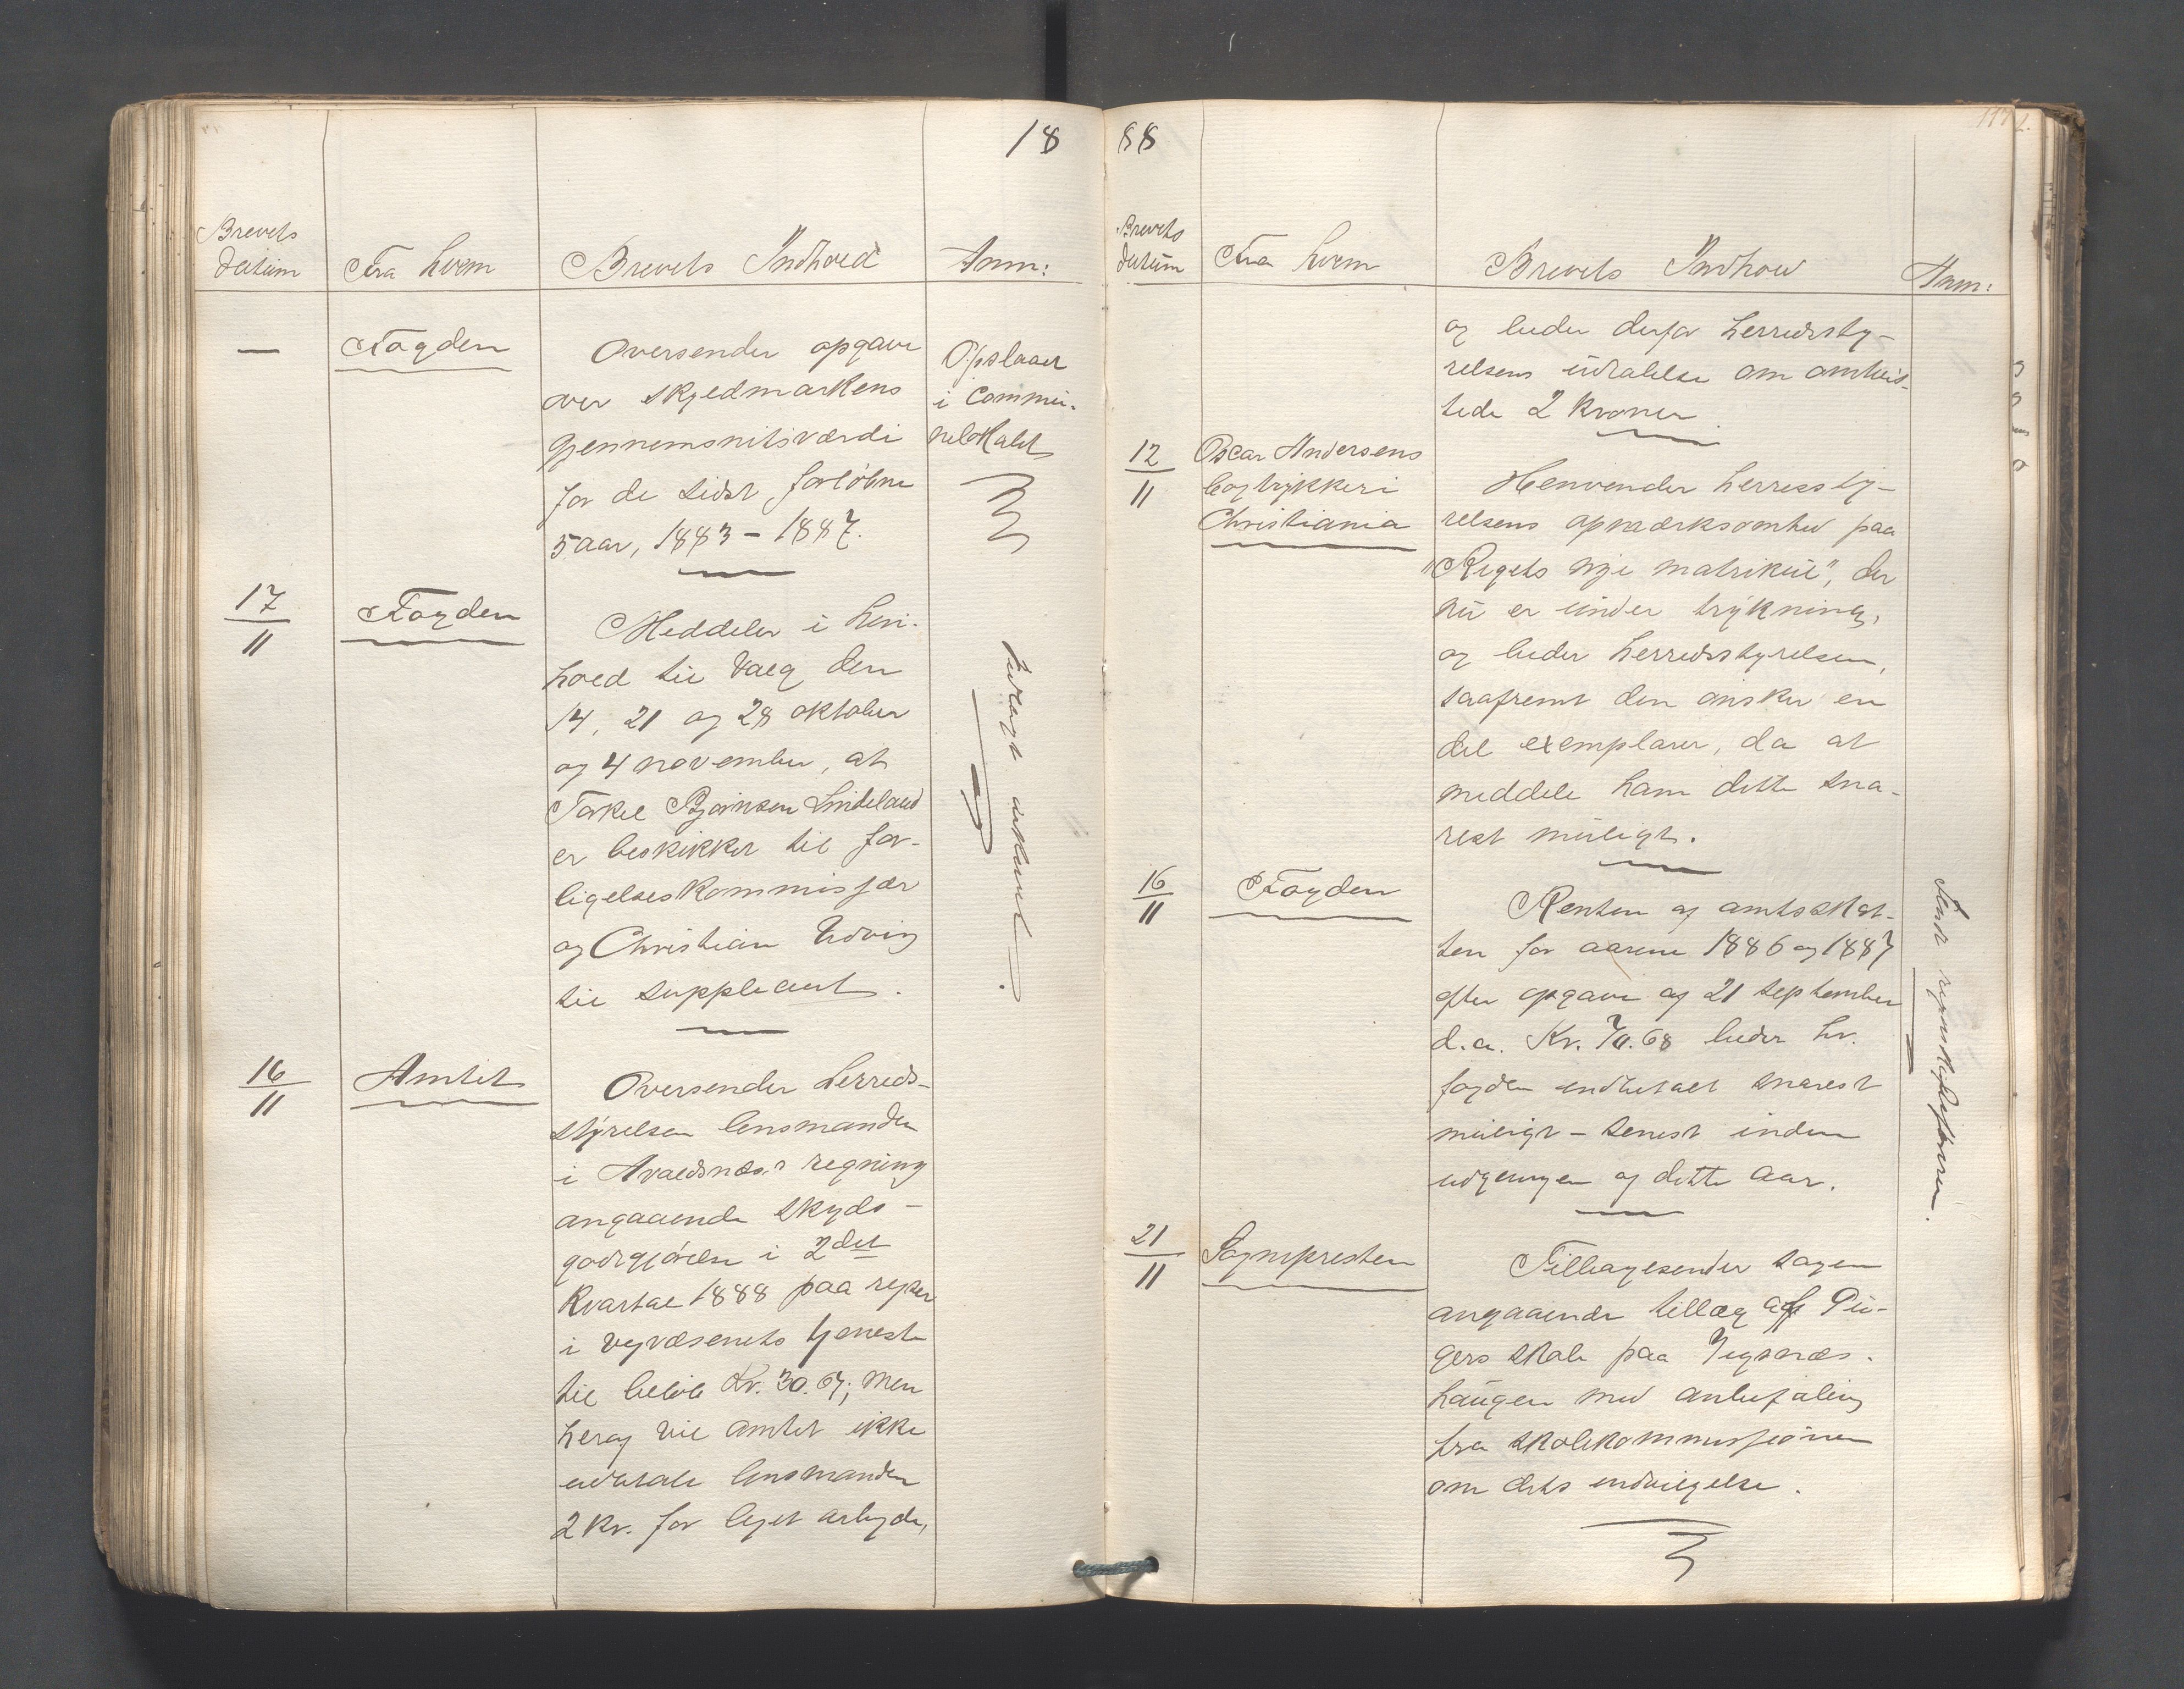 18
Brevets
datum
Fra hvem
Brevets Indhold
Anm:
—
Fogden
Oversender opgave
over skyldmarkens
gjennemsnitsværdi
for de sidst forløbne
5 aar, 1883 - 1887.
Opslaaet
i Commu-
nelokalet
17/11
Fogden
Meddeler i hen-
hold til valg den
14, 21 og 28 oktober
og 4 november, at
Torkel Bjørnsen Lindeland
er beskikket til for-
ligelseskommissær
og Christian Udvig
til suppleant.
16/11
Amtet
Oversender herreds-
styrelsen lensmanden
i Avaldsnæs's regning
angaaende skyds-
godtgjørelse i 2det
Kvartal 1888 paa rejser
i vejvæsenets tjeneste
til beløb Kr. 30.07; men
heraf vil amtet ikke
udbetale lensmanden
2 kr. for lejet arbejde,
88
Brevets
datum
Fra hvem
Brevets Indhold
Anm:
og beder derfor herredssty-
relsens udtalelse om omtvis-
tede 2 kroner
12/11
Oscar Andersens
bogtrykkeri
Christiania
Henvender herredssty-
relsens opmærksomhed paa
"Rigets nye matrikul", der
nu er under trykning,
og beder herredsstyrelsen,
saafremt den ønsker en
del exemplarer, da at
meddele ham dette sna-
rest muligt.
16/11
Fogden
Resten af amtsskat-
ten for aarene 1886 og 1887
efter opgave af 21 september
d.a. Kr. 70.68 beder hr.
fogden indbetalt snarest
muligt - senest inden
udgangen af dette aar.
21/11
Sognepresten
Tilbagesender sagen
angaaende tillæg af Pi-
gers skole paa Vigsnæs-
haugen med anbefaling
fra skolekommissionen
om dets indvilgelse.